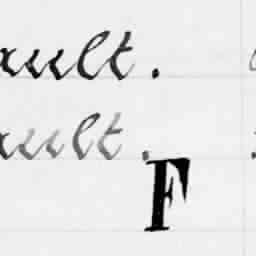 ault.
ault.
F